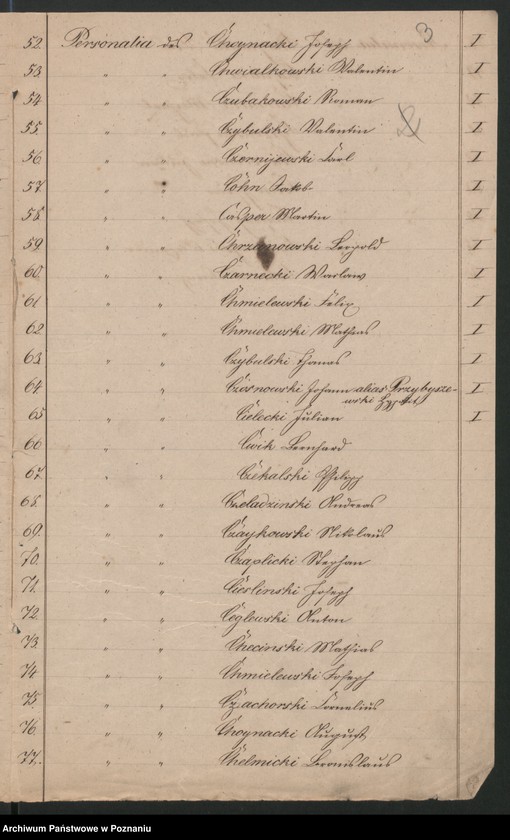 3
52. Personalia des Choynacki Joseph I
53 " " Chwialkowski Valentin I
54 " " Czubakowski Roman I
55. " " Czybulski Valentin I
56 " " Czernijewski Carl I
57. " " Cohn Jakob I
58. " " Casper Martin I
59. " " Chrzanowski Leopold I
60. " " Czarnecki Warlaw I
61 " " Chmielewski Felix I
62 " " Chmielewski Mathias I
63. " " Czybulski Thomas I
64. " " Czosnowski Johann alias Przybysze- I
wski
65 " " Cielecki Julian I
66 " " Cwik Bernhard
67. " " Czekalski Philipp
68. " " Czeladzinski Andreas
69. " " Czaykowski Nikolaus
70. " " Czaplicki Stephan
71. " " Cieslinski Joseph
72. " " Ceglewski Anton
73. " " Checinski Mathias
74 " " Chmielewski Joseph
75. " " Czachorski Cornelius
76. " " Choynacki August
77. " " Chelmicki Bronislaus
Archiwum Państwowe w Poznaniu